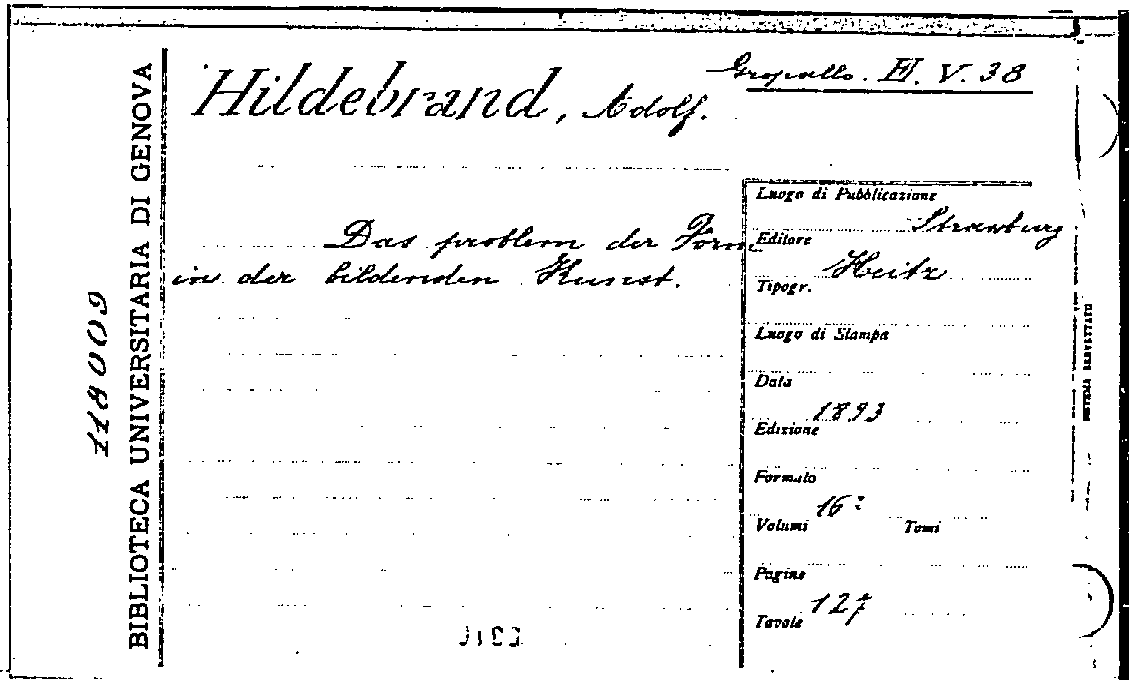 Gropallo. H. V. 38
Hildebrand, Adolf.
Das problem der Form
in der bildenden Kunst.
Luogo di Pubblicazione
Strasburg
Editore
Heitz
Tipogr.
Luogo di Stampa
Data
1893
Edizione
Formato
16º
Volumi Tomi
Pagine
127
Tavole
BIBLIOTECA UNIVERSITARIA DI GENOVA
118009